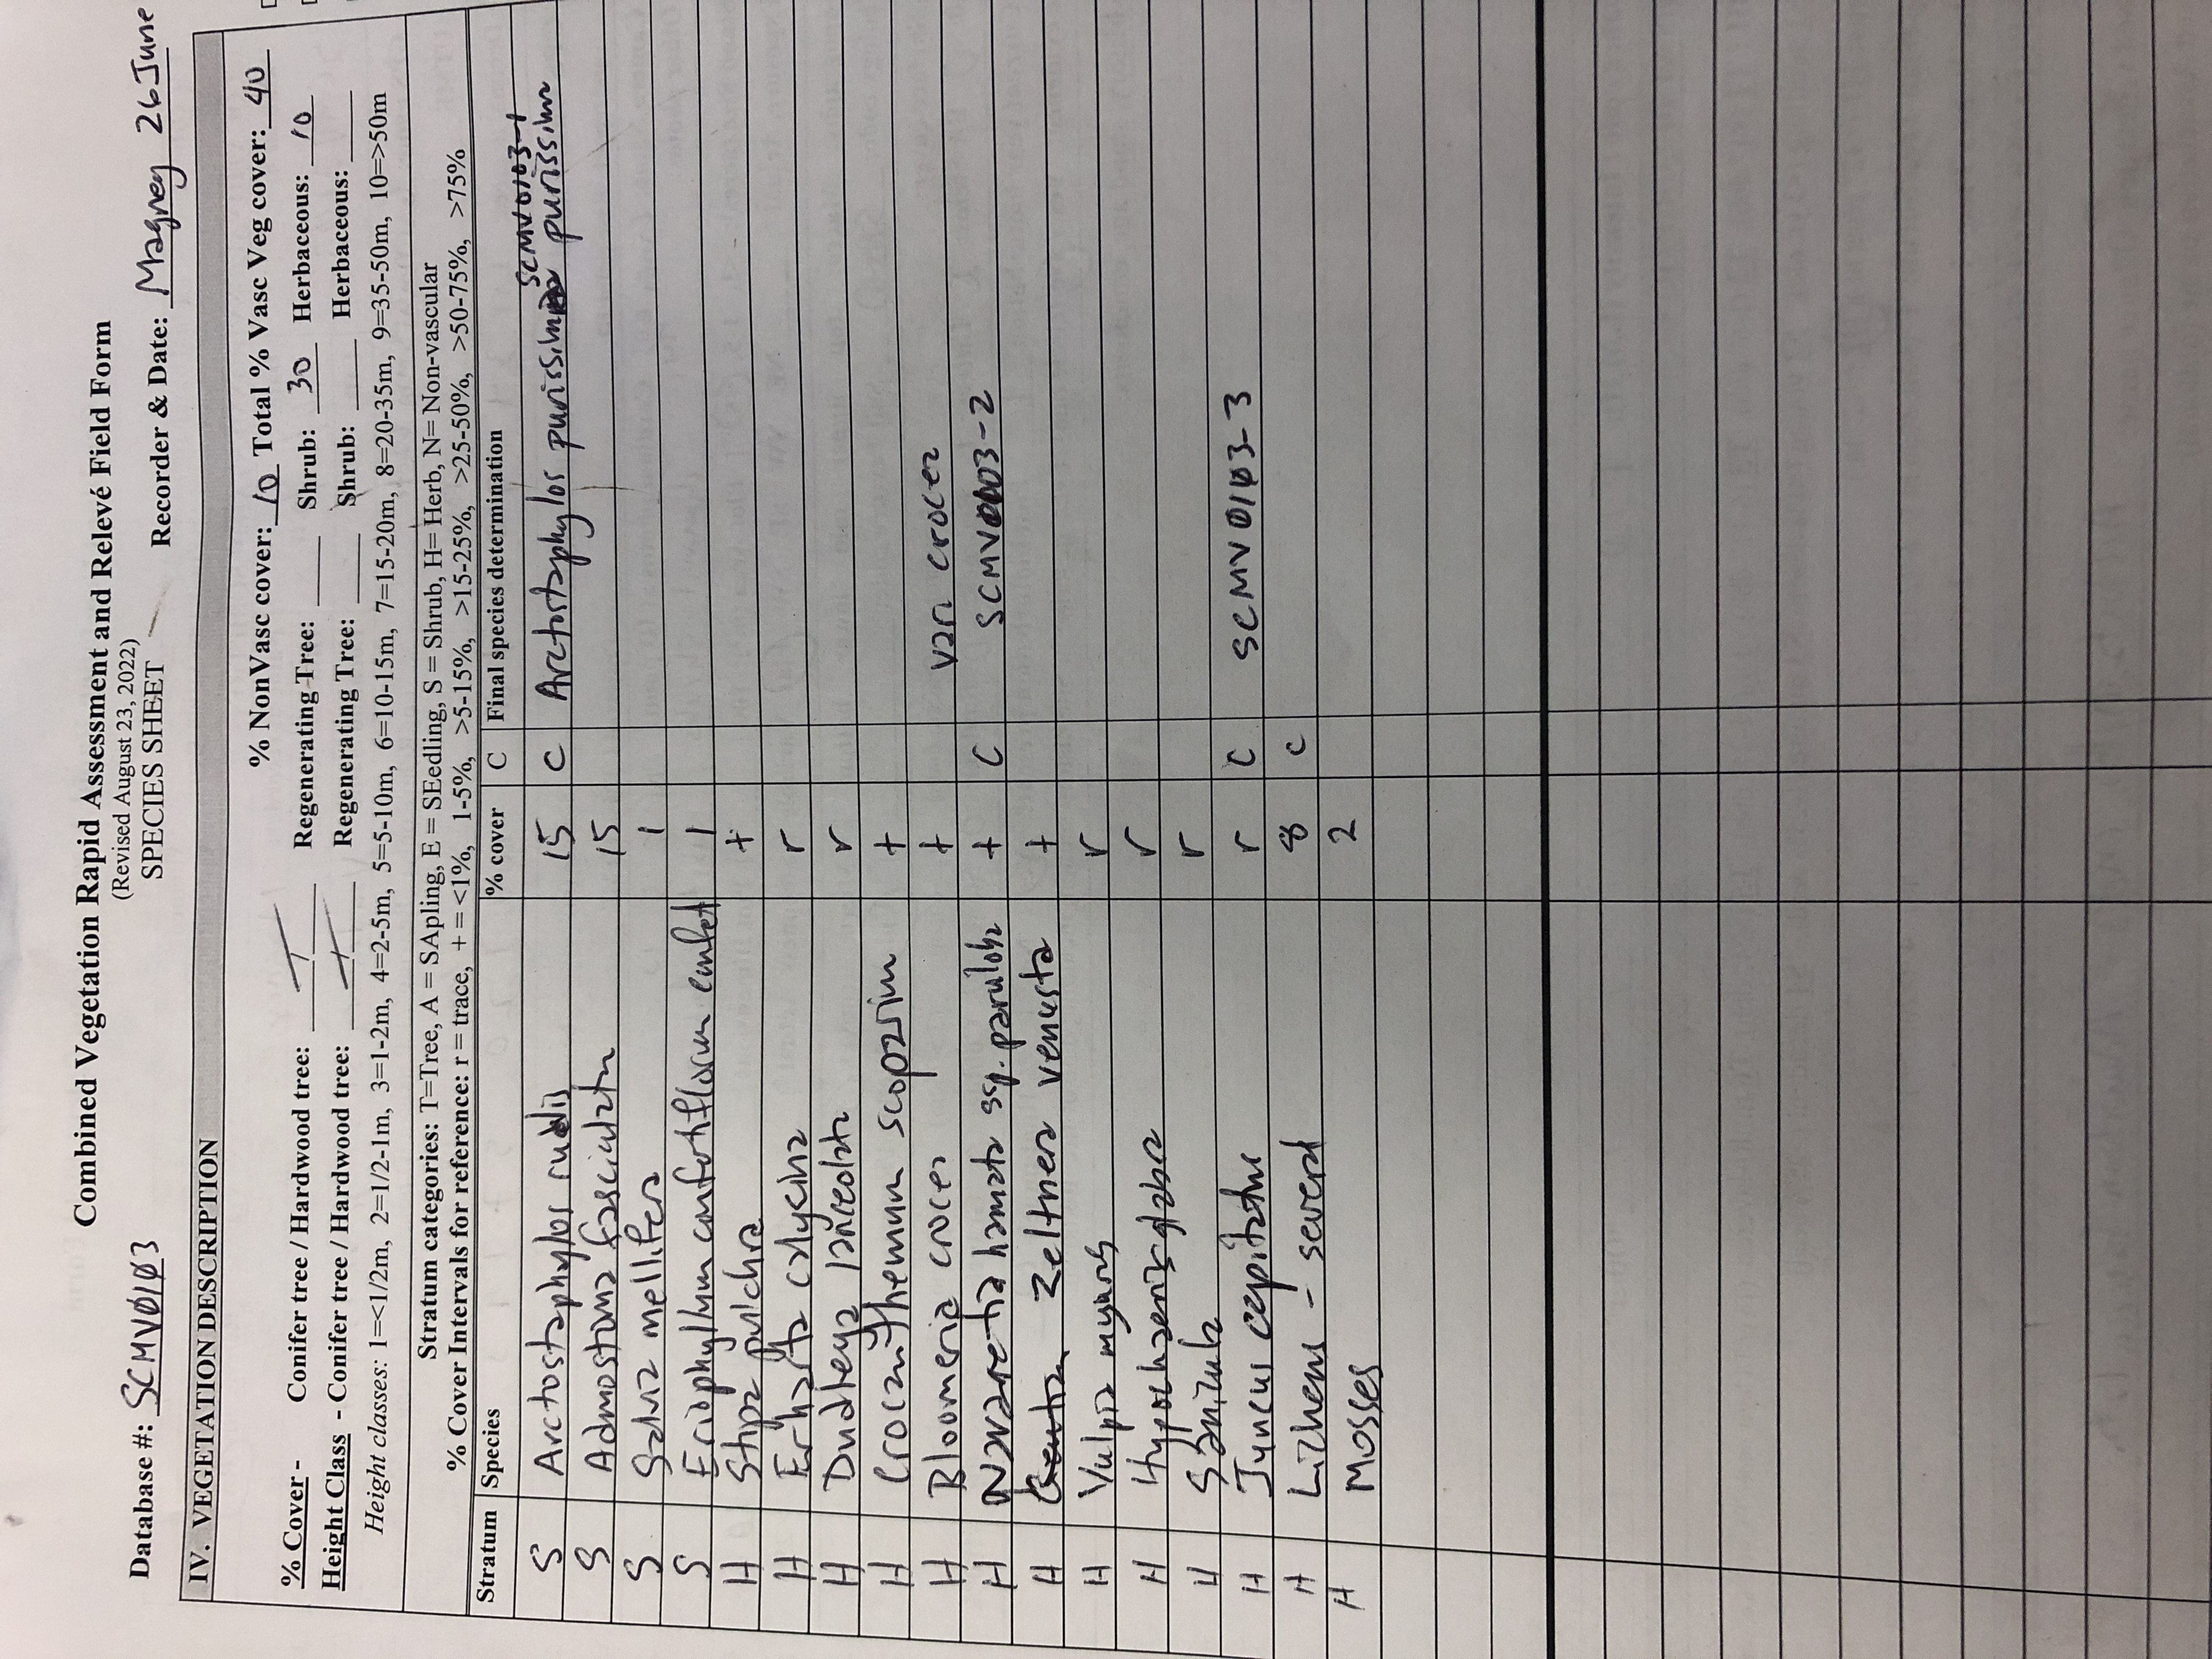 Combined Vegetation Rapid Assessment and Relevé Field Form
(Revised August 23, 2022)
SPECIES SHEET
Database #: SCMV0103 Recorder & Date: Magney 26 June
IV. VEGETATION DESCRIPTION
% NonVasc cover: 10 Total % Vasc Veg cover: 40
% Cover - Conifer tree / Hardwood tree: / Regenerating Tree: Shrub: 30 Herbaceous: 10
Height Class - Conifer tree / Hardwood tree: / Regenerating Tree: Shrub: Herbaceous:
Height classes: 1=<1/2m, 2=1/2-1m, 3=1-2m, 4=2-5m, 5=5-10m, 6=10-15m, 7=15-20m, 8=20-35m, 9=35-50m, 10=>50m
Stratum categories: T=Tree, A = SApling, E = SEedling, S = Shrub, H= Herb, N= Non-vascular
% Cover Intervals for reference: r = trace, + = <1%, 1-5%, >5-15%, >15-25%, >25-50%, >50-75%, >75%
Stratum Species % cover C Final species determination
SCMV0103-1
S Arctostaphylos rudis 15 C Arctostaphylos purissima purissima
S Adenostoma fasciculatum 15
S Salvia mellifera 1
S Eriophyllum confertiflorum confert 1
H Stipa pulchra +
H Erharta calycina r
H Dudleya lanceolata r
H Crocanthemum scoparium +
H Bloomeria crocea + var. crocea
H Navarretia hamata ssp. parviloba + C SCMV0103-2
H Zeltnera venusta +
H Vulpia myuros r
H Hypochaeris glabra r
H Sanicula r
H Juncus capitatus r C SCMV0103-3
H Lichens - several 8 C
H Mosses 2